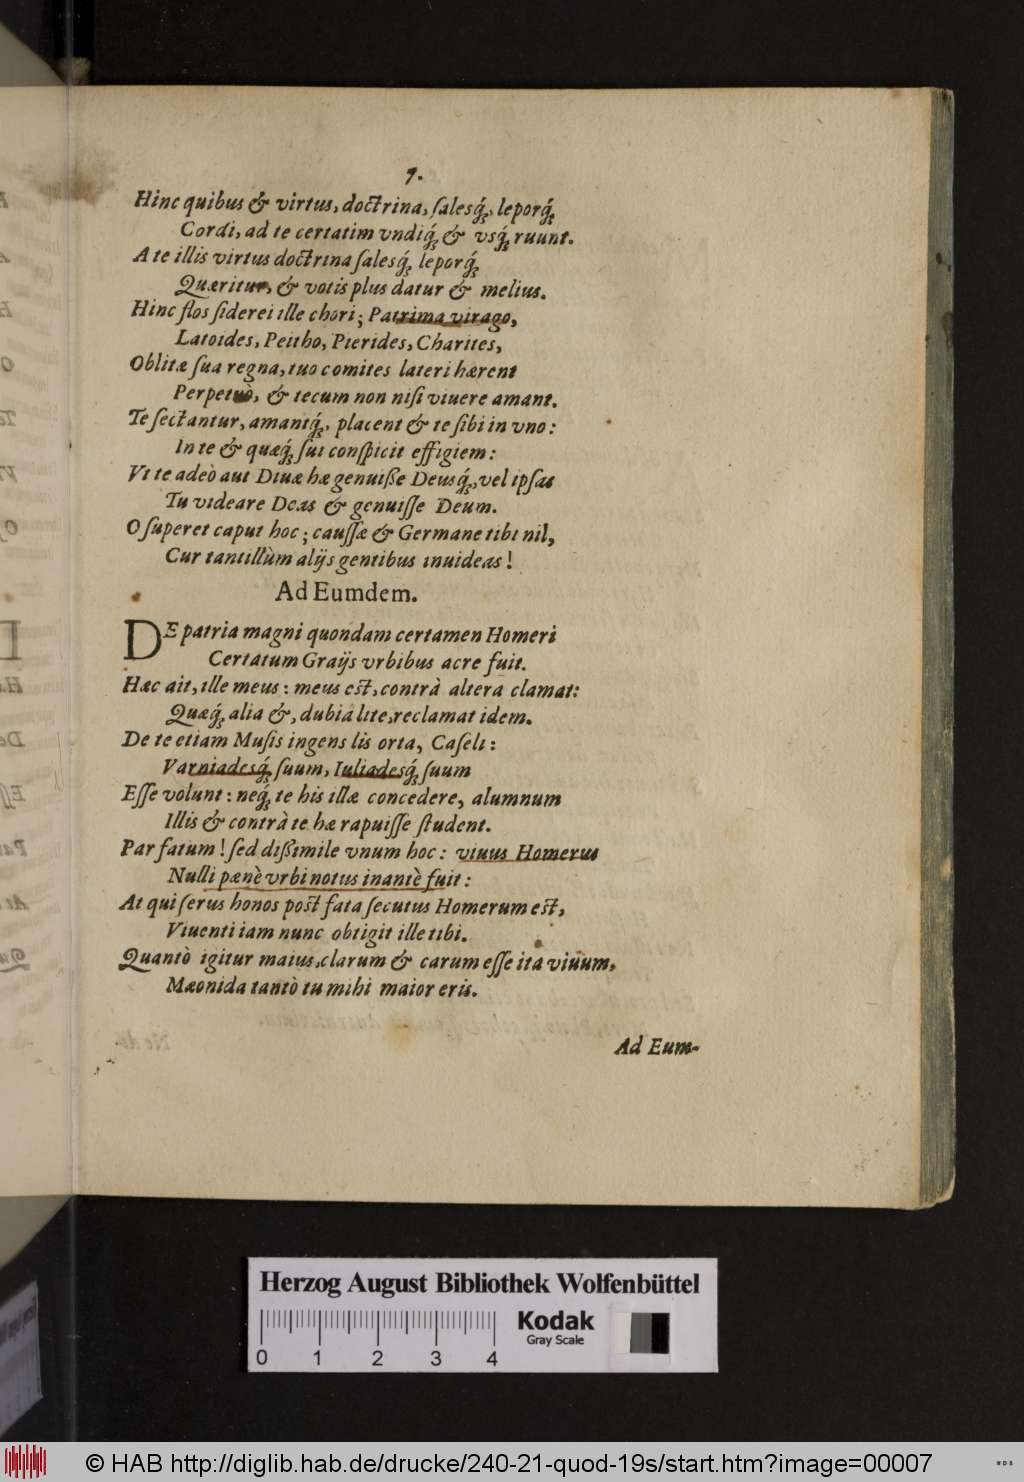 7.
Hinc quibus & virtus, doctrina, ſalesq́;, leporq́;
Cordi, ad te certatim vndiq́; & vsq́; ruunt.
A te illis virtus doctrina ſalesq́; leporq́;
Quæritur, & votis plus datur & melius.
Hinc flos ſiderei ille chori; Patrima virago,
Latoides, Peitho, Pierides, Charites,
Oblitæ ſua regna, tuo comites lateri hærent
Perpetuò, & tecum non niſi viuere amant.
Te ſectantur, amantq́;, placent & te ſibi in vno:
In te & quæq́; ſui conſpicit effigiem:
Vt te adeò aut Diuæ hæ genuiſſe Deusq́;, vel ipſas
Tu videare Deas & genuiſſe Deum.
O ſuperet caput hoc; cauſſæ & Germane tibi nil,
Cur tantillùm alijs gentibus inuideas!
Ad Eumdem.
DE patria magni quondam certamen Homeri
Certatum Graijs vrbibus acre fuit.
Hæc ait, ille meus: meus est, contrà altera clamat:
Quæq́; alia &, dubiá lite, reclamat idem.
De te etiam Muſis ingens lis orta, Caſeli:
Varniadesq́; ſuum, Iuliadesq́; ſuum
Eſſe volunt: neq́; te his illæ concedere, alumnum
Illis & contrà te hæ rapuiſſe ſtudent.
Par fatum! ſed diſſimile vnum hoc: viuus Homerus
Nulli pænè vrbi notus inantè fuit:
At qui ſerus honos poſt fata ſecutus Homerum eſt,
Viuenti iam nunc obtigit ille tibi.
Quantò igitur maius, clarum & carum eſſe ita viuum,
Mæonida tantò tu mihi maior eris.
Ad Eum-
Herzog August Bibliothek Wolfenbüttel
Kodak
Gray Scale
0 1 2 3 4
© HAB http://diglib.hab.de/drucke/240-21-quod-19s/start.htm?image=00007